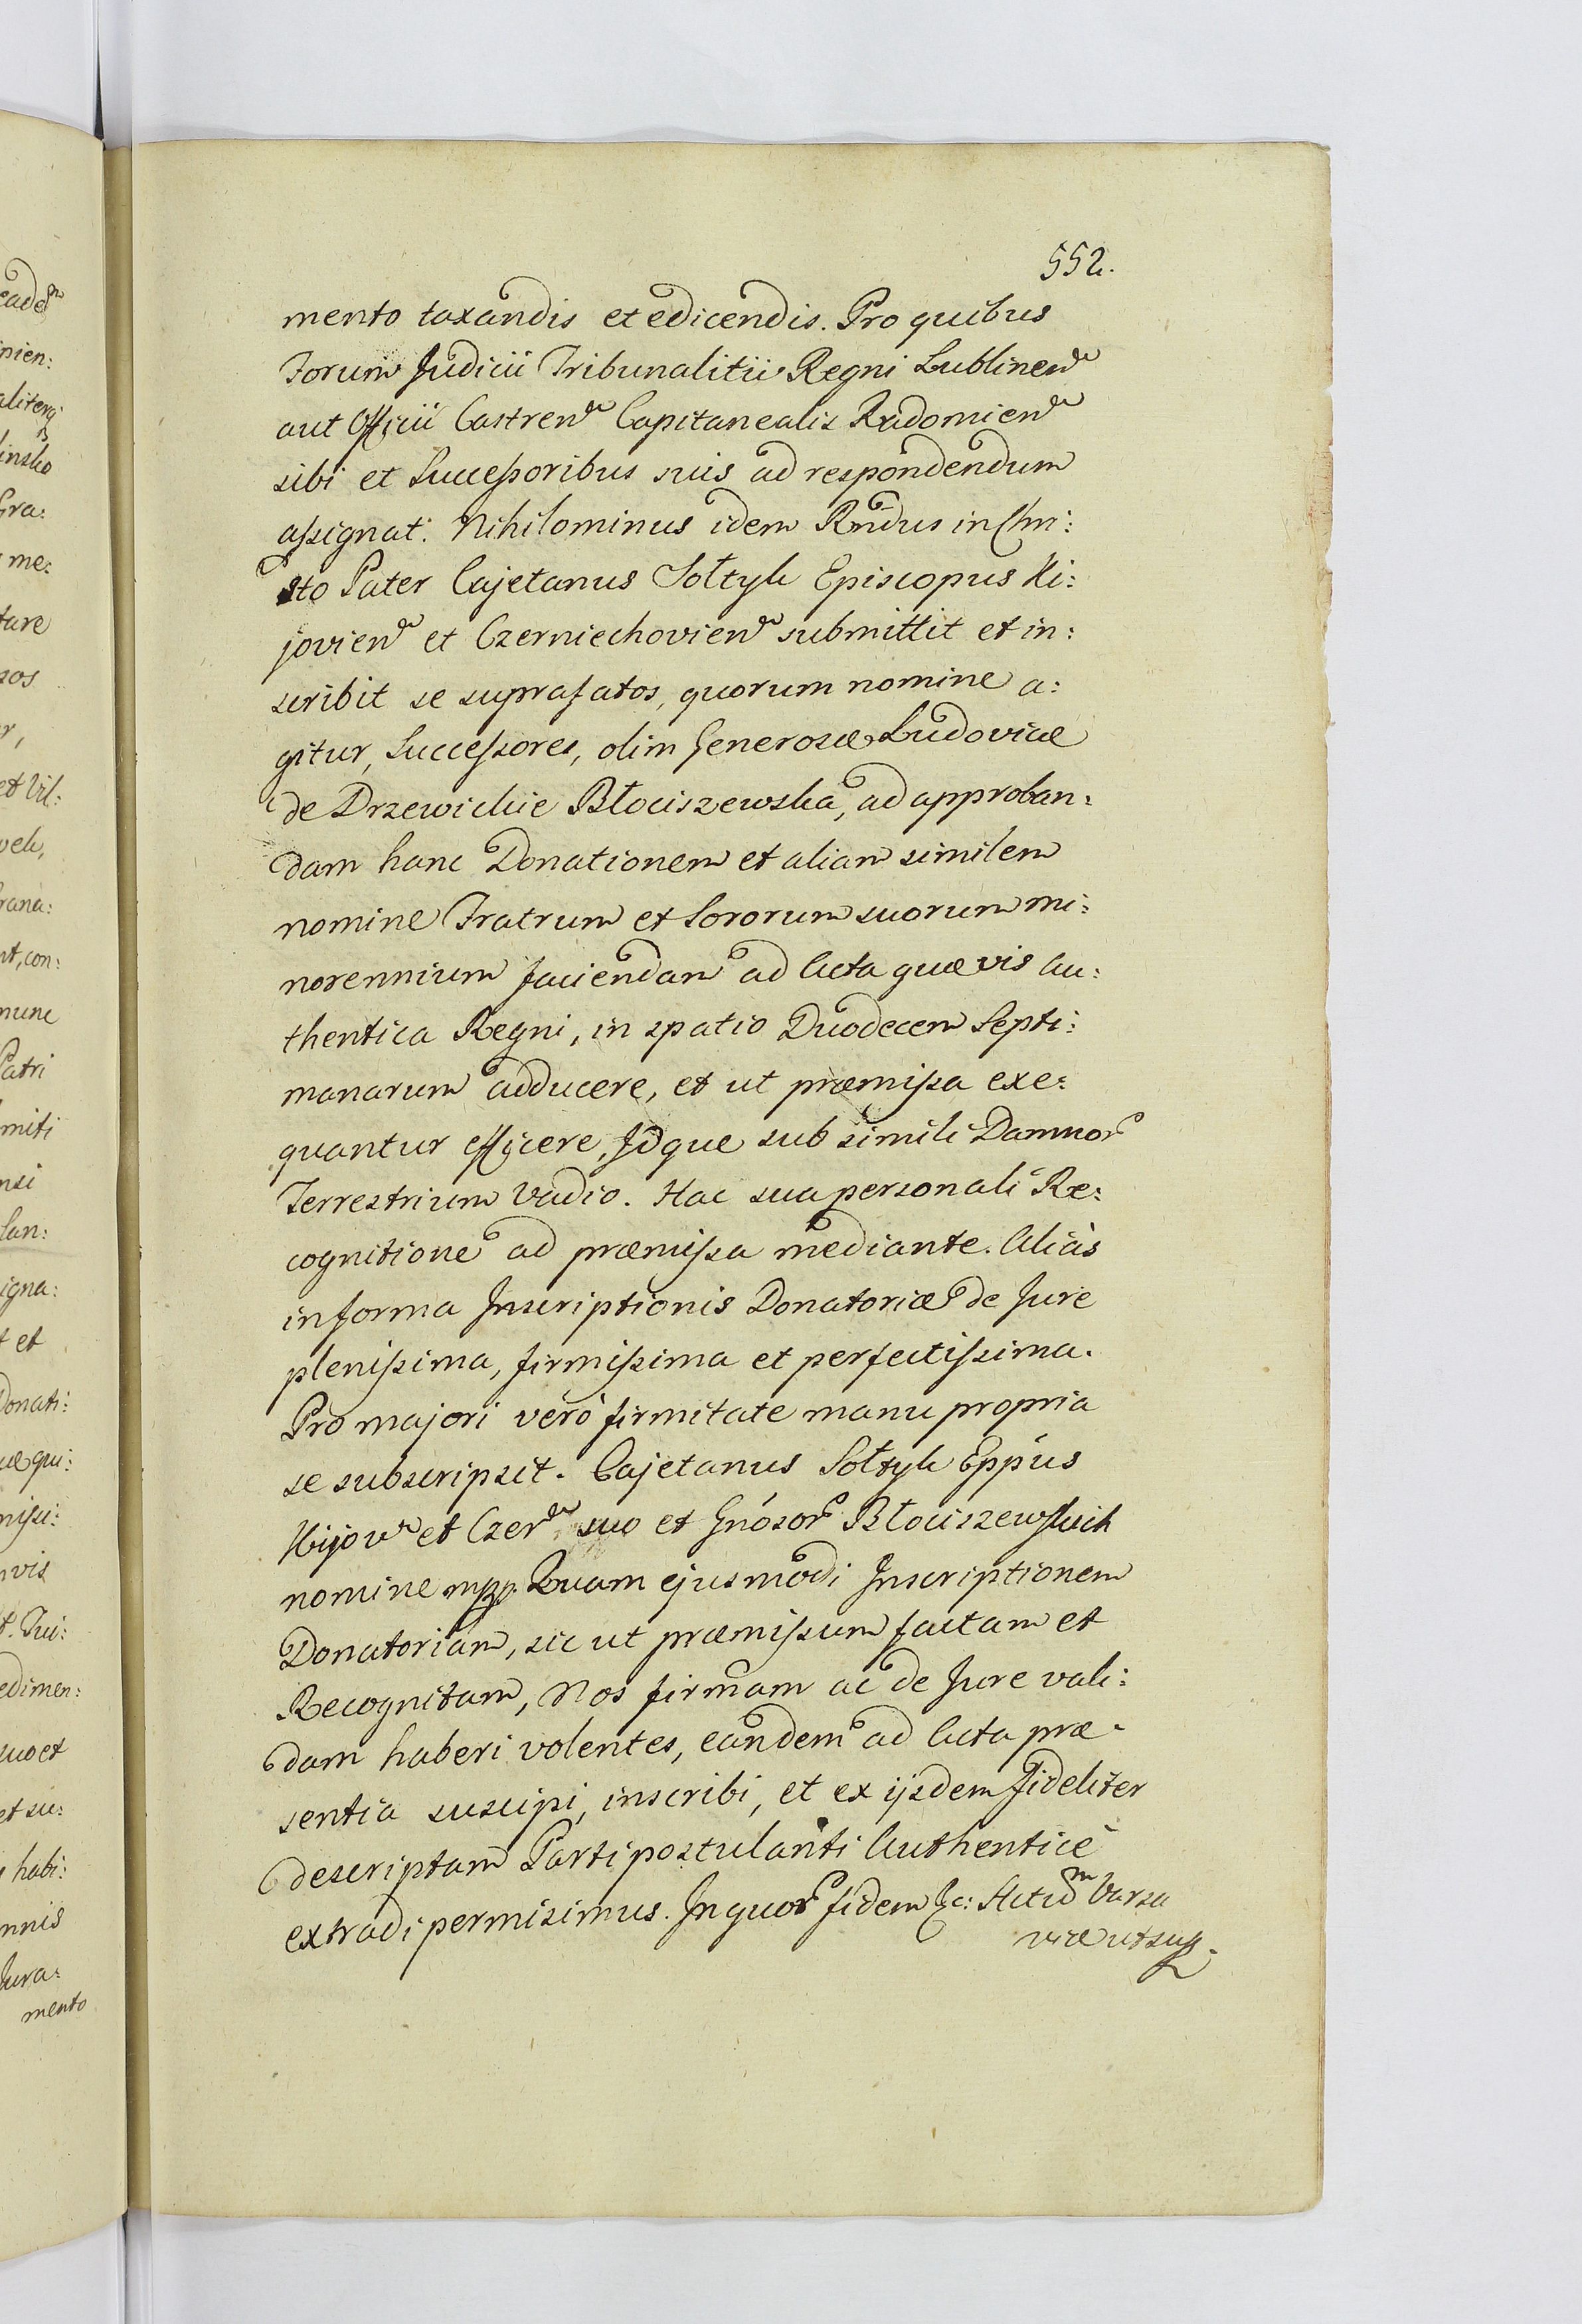 552.
mento taxandis et edicendis. Pro quibus
Forum Judicii Tribunalitii Regni Lublinen
aut Officii Castren Capitanealis Radomien
sibi et Successoribus suis ad respondendum
assignat. Nihilominus idem Rndus in Chri:
sto Pater Cajetanus Sołtyk Episcopus Ki:
jovien et Czerniechovien submittit et in:
scribit se suprafatos, quorum nomine a:
gitur, Successores, olim Generosæ Ludovicæ
de Drzewickie Błociszewska, ad approban:
dam hanc Donationem et aliam similem
nomine Fratrum et Sororum suorum mi:
norennium faciendam ad Acta quævis Au:
thentica Regni, in spatio Duodecem Septi:
manarum adducere, et ut præmissa exe:
quantur efficere, Idque sub simili Damnor
Terrestrium Vadio. Hac sua personali Re:
cognitione ad præmissa mediante. Aliàs
in forma Inscriptionis Donatoriæ de Jure
plenissima, firmissima et perfectissima.
Pro majori verò firmitate manu propria
se subscripsit. Cajetanus Sołtyk Eppus
Kijov et Czer suo et Gnosor Błociszewskich
nomine mpp. Quam ejusmodi Inscriptionem
Donatoriam, sic ut præmissum factam et
Recognitam, Nos firmam ac de Jure vali:
dam haberi volentes, eandem ad Acta præ:
sentia suscipi, inscribi, et ex ijsdem fideliter
descriptam Parti postulanti Authenticè
extradi permisimus. In quor fidem &c: Actum Varsa
viæ ut sup.
eadem
nien:
aliterq
insko
Gra:
me:
tare
sos
r,
et Vil:
vek,
rana:
nt, con:
nunc
Patri
miti
nsi
San:
igna:
t et
Donati:
uæ qui:
misi:
vis
t. Tui:
edimen:
suo et
et su:
habi:
nnis
Jura:
mento